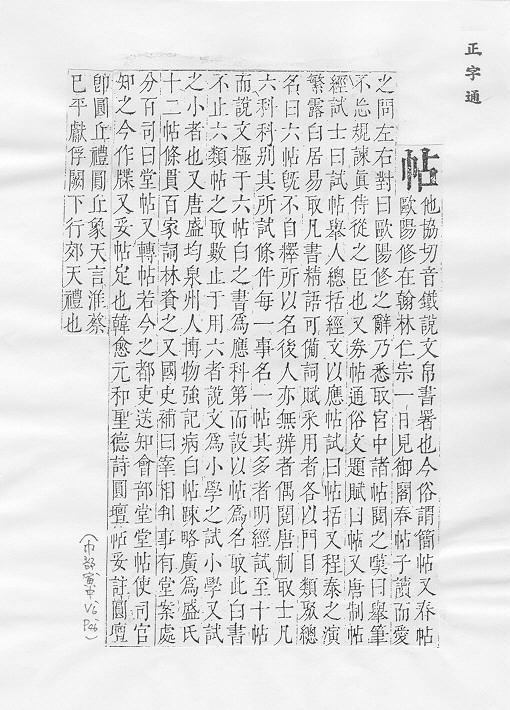 正字通
帖
他協切音鐵說文帛書署也今俗謂簡帖又春帖
歐陽修在翰林仁宗一日見御閣春帖子讀而愛
之問左右對曰歐陽修之辭乃悉取宮中諸帖閱之嘆曰舉筆
不忘規諫眞侍從之臣也又券帖通俗文題賦曰帖又唐制帖
經試士曰試帖舉人總括經文以應帖試曰帖括又程泰之演
繁露白居易取凡書精語可備詞賦采用者各以門目類聚總
名曰六帖旣不自釋所以名後人亦無辨者偶閱唐制取士凡
六科科別其所試條件每一事名一帖其多者明經試至十帖
而說文極于六帖白之書爲應科第而設以帖爲名取此白書
不止六類帖之取數止于用六者說文爲小學之試小學又試
之小者也又唐盛均泉州人博物強記病白帖踈略廣爲盛氏
十二帖條貫百家詞林賚之又國史補曰宰相判事有堂案處
分百司曰堂帖又轉帖若今之都吏送知會部堂堂帖使司官
知之今作牒又妥帖定也韓愈元和聖德詩圓壇帖妥註圓壇
卽圓丘禮圓丘象天言淮蔡
已平獻俘闕下行郊天禮也
(巾部寅中 V6 P26)